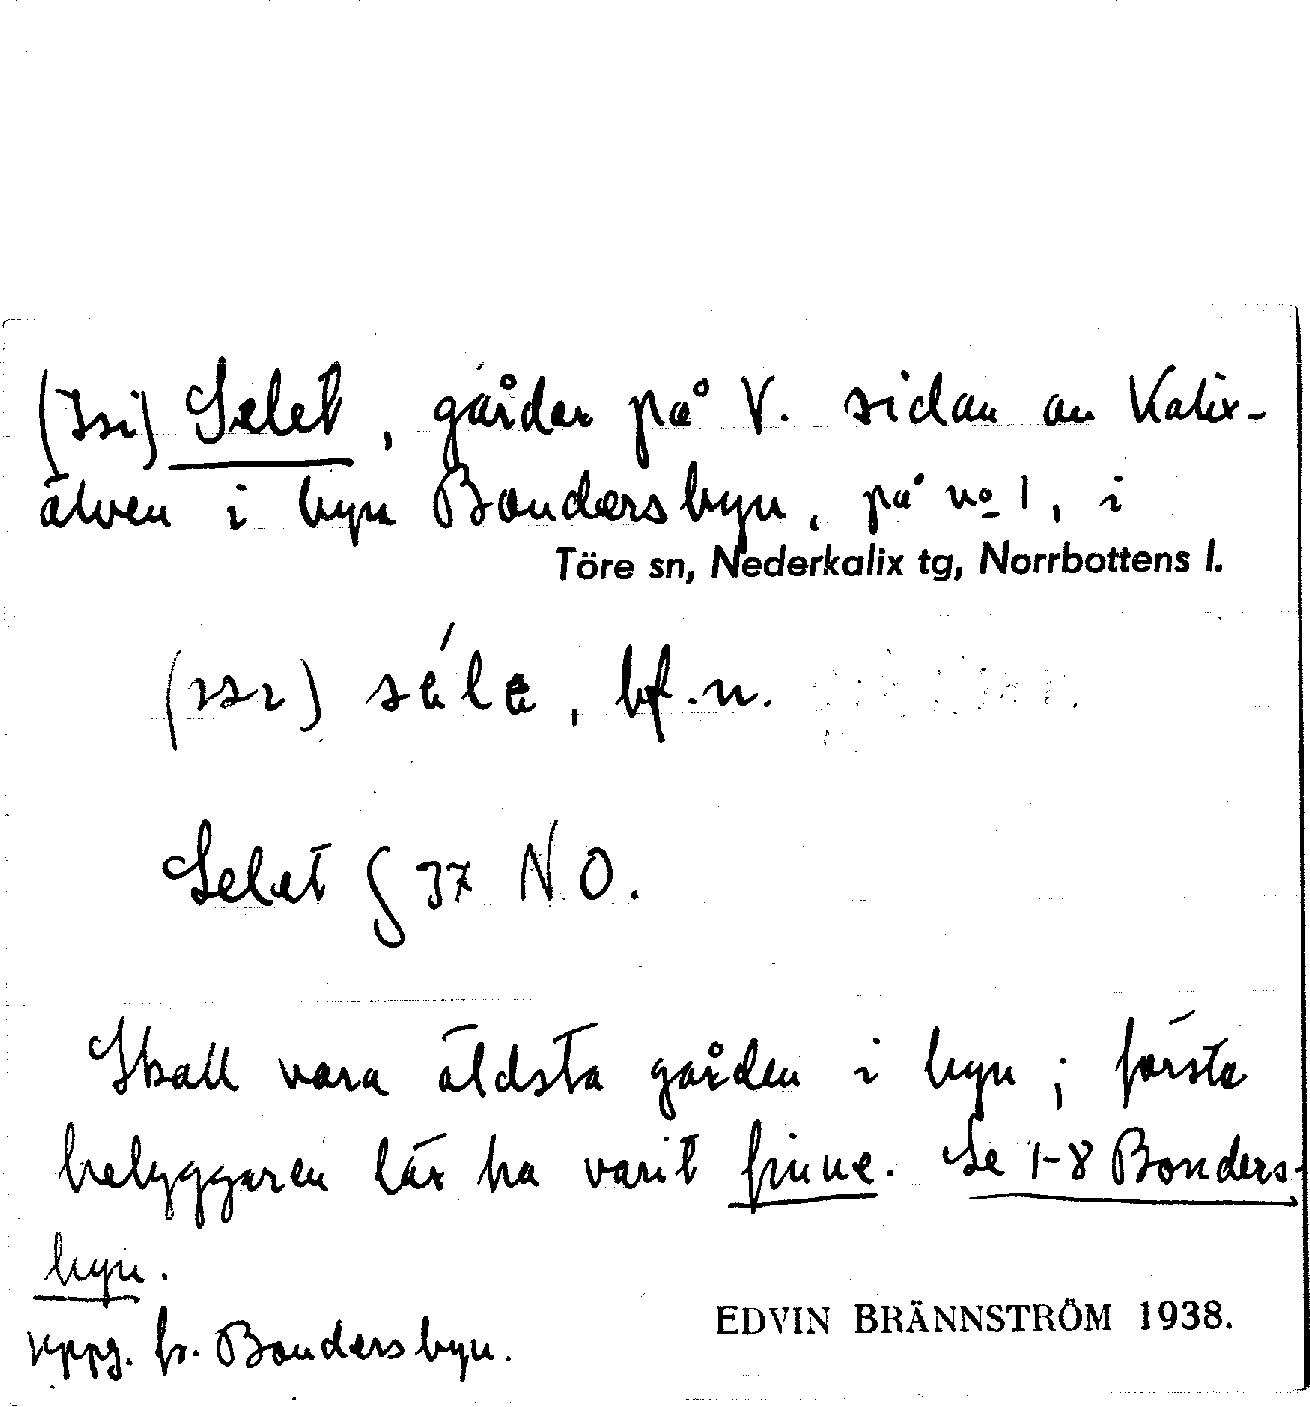 Selet, gårdar på V. sidan av Kalix-
älven i byn Bondersbyn, på no 1, i
Töre sn, Nederkalix tg, Norrbottens l.
séla, bf. n.
Selet § 37 N O.
Skall vara äldsta gården i byn; första
bebyggaren lär ha varit finne. Se 1-8 Bonders-
byn.
uppg. fr. Bondersbyn.
EDVIN BRÄNNSTRÖM 1938.